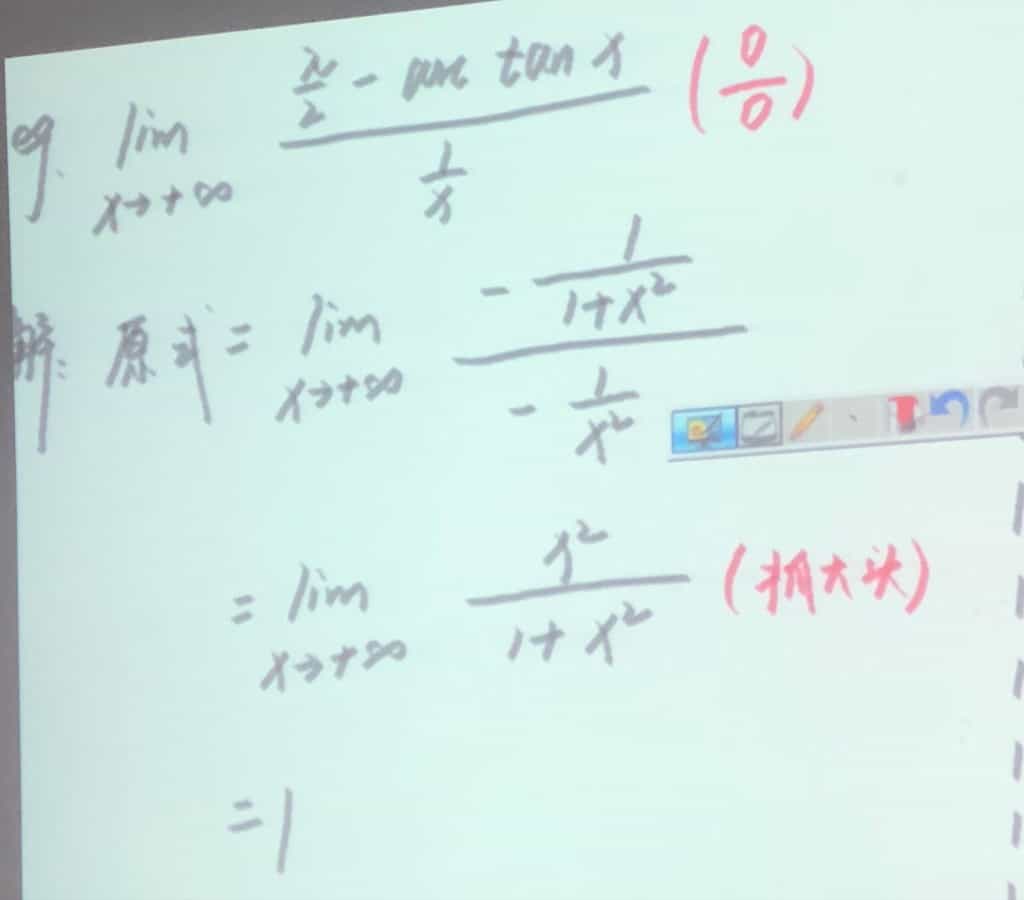 eg. lim x→+∞ (π/2 - arc tan x)/(1/x) (0/0)
解: 原式 = lim x→+∞ (- 1/(1+x²))/(- 1/x²)
= lim x→+∞ x²/(1+x²) (抓大头)
= 1